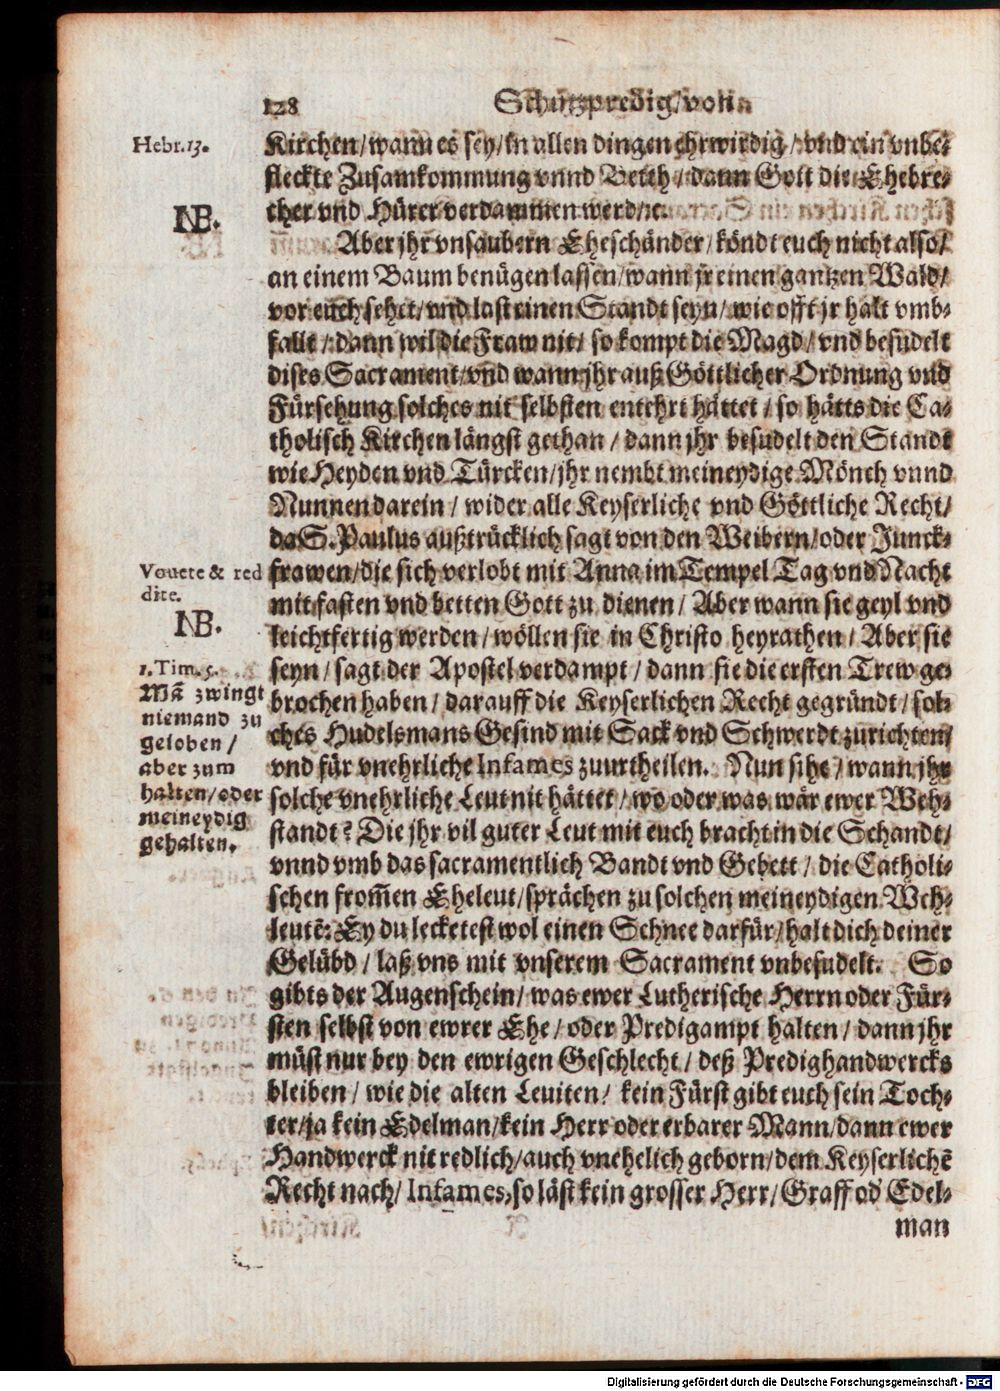 128 Schutzpredig/von
Hebr. 13.
NB.
Kirchen/wann es sey/in allen dingen ehrwirdig/vnd ein vnbe-
fleckte Zusamkommung vnnd Betth/dann Gott die Ehebre-
cher vnd Hurer verdammen werd/rc.
Aber jhr vnsaubern Eheschänder/köndt euch nicht also/
an einem Baum benügen lassen/wann jr einen gantzen Wald/
vor euch sehet/vnd last einen Standt seyn/wie offt jr halt vmb-
fallt/dann wil die Fraw nit/so kompt die Magd/vnd besudelt
dises Sacrament/vnd wann jhr auß Göttlicher Ordnung vnd
Fürsehung solches nit selbsten entehrt hättet/so hätts die Ca-
tholisch Kirchen längst gethan/dann jhr besudelt den Standt
wie Heyden vnd Türcken/jhr nembt meineydige Mönch vnnd
Nunnen darein/wider alle Keyserliche vnd Göttliche Recht/
da S. Paulus außtrücklich sagt von den Weibern/oder Junck-
frawen/die sich verlobt mit Anna im Tempel Tag vnd Nacht
mit fasten vnd betten Gott zu dienen/Aber wann sie geyl vnd
leichtfertig werden/wöllen sie in Christo heyrathen/Aber sie
seyn/sagt der Apostel verdampt/dann sie die ersten Trew ge-
brochen haben/darauff die Keyserlichen Recht gegründt/sol-
ches Hudelsmans Gesind mit Sack vnd Schwerdt zurichten/
vnd für vnehrliche Infames zuurtheilen. Nun sihe/wann jhr
solche vnehrliche Leut nit hättet/wo oder was wär ewer Weh-
standt? Die jhr vil guter Leut mit euch bracht in die Schandt/
vnnd vmb das sacramentlich Bandt vnd Gebett/die Catholi-
schen from̃en Eheleut/sprächen zu solchen meineydigen Weh-
leutẽ: Ey du lecketest wol einen Schnee darfür/halt dich deiner
Gelübd/laß vns mit vnserem Sacrament vnbesudelt. So
gibts der Augenschein/was ewer Lutherische Herrn oder Für-
sten selbst von ewrer Ehe/oder Predigampt halten/dann jhr
müst nur bey den ewrigen Geschlecht/deß Predighandwercks
bleiben/wie die alten Leuiten/kein Fürst gibt euch sein Toch-
ter/ja kein Edelman/kein Herr oder erbarer Mann/dann ewer
Handwerck nit redlich/auch vnehelich geborn/dem Keyserlichẽ
Recht nach/Infames, so läst kein grosser Herr/Graff od Edel-
man
Vouete & red
dite.
NB.
1. Tim. 5.
Mã zwingt
niemand zu
geloben/
aber zum
halten/oder
meineydig
gehalten.
Digitalisierung gefördert durch die Deutsche Forschungsgemeinschaft - DFG